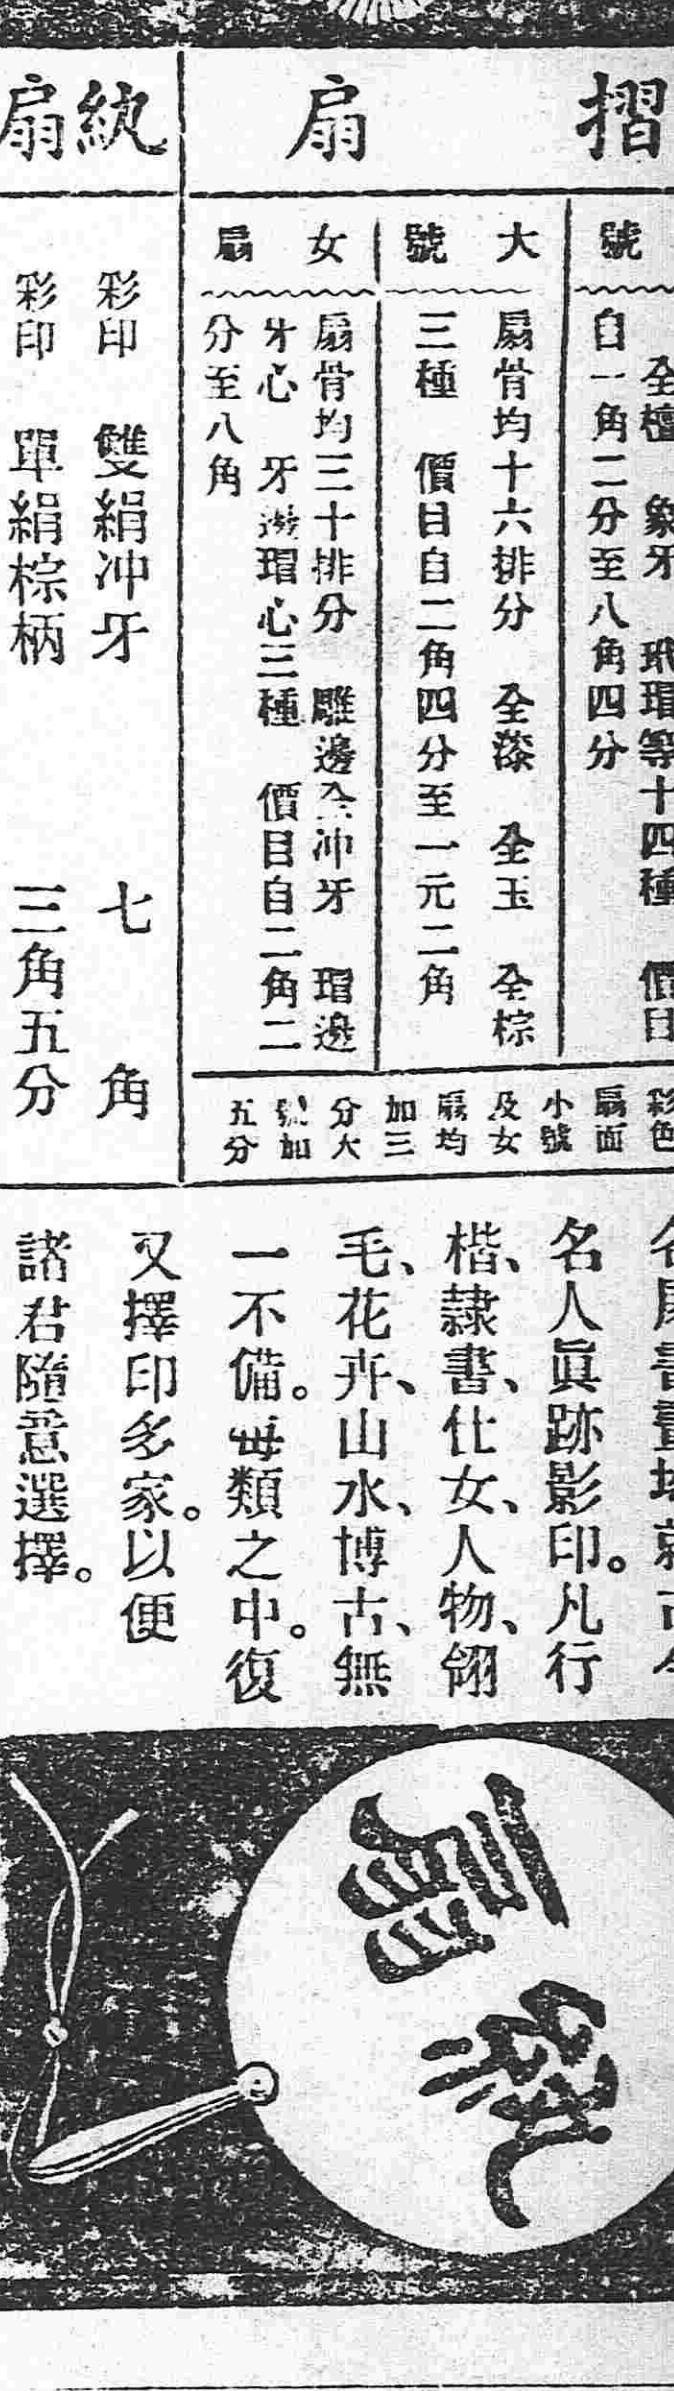 摺扇
號
全檀　象牙　玳瑁等十四種　價目
自一角二分至八角四分
大號
扇骨均十六排分　全漆　全玉　全棕
三種　價目自二角四分至一元二角
女扇
扇骨均三十排分　雕邊全冲牙　瑁邊
牙心　牙邊瑁心三種　價目自二角二
分至八角
彩色
扇面
小號
及女
扇均
加三
分大
號加
五分
紈扇
彩印　雙絹冲牙　七角
彩印　單絹棕柄　三角五分
名人眞跡影印。凡行
楷、隸書、仕女、人物、翎
毛、花卉、山水、博古、無
一不備。每類之中。復
又擇印多家。以便
諸君隨意選擇。
紈扇